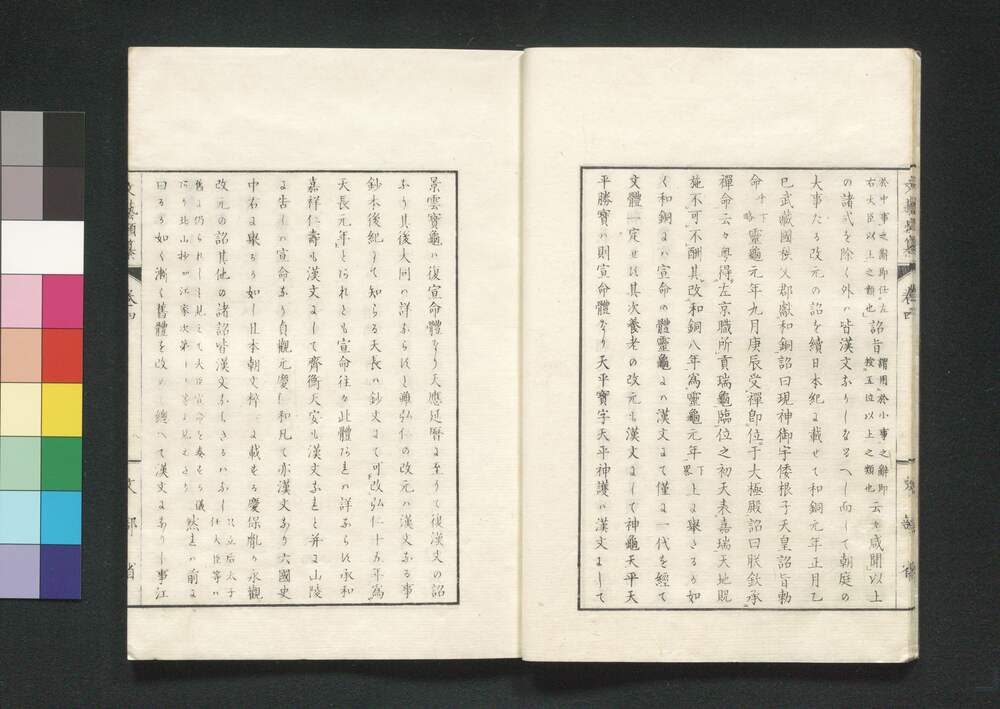 於中事之辭即任左
右大臣以上之類也
詔旨
謂用於小事之辭即
授五位以上之類也
云々咸聞以上
の諸式を除く外ハ皆漢文なりしなるへし而して朝庭の
大事たる改元の詔を續日本紀に載せて和銅元年正月乙
巳武藏國秩父郡獻和銅詔曰現神御宇倭根子天皇詔旨勅
命
下略
靈龜元年九月庚辰受禪即位于大極殿詔曰朕欽承
禪命云々粤得左京職所貢瑞龜臨位之初天表嘉瑞天地貺
施不可不酬其改和銅八年為靈龜元年
下略
上に舉さるゝ如
く和銅にハ宣命の體靈龜にハ漢文にて僅に一代を經て
文體一定せす其次養老の改元も漢文にして神龜天平天
平勝寶ハ則宣命體なり天平寶字天平神護ハ漢文にして
景雲寶龜ハ復宣命體なり天應延曆に至りて復漢文の詔
なり其後大同ハ詳ならすと雖弘仁の改元ハ漢文なる事
鈔本後紀にて知らる天長ハ鈔文にて可改弘仁十五年為
天長元年とあれとも宣命往々此體あれハ詳ならす承和
嘉祥仁壽も漢文にして齊衡天安も漢文なれと并に山陵
に告しハ宣命なり自觀元慶仁和凡て亦漢文なり六國史
中右に舉るゝ如し且本朝文粹に載する慶保胤の永觀
改元の詔其他の諸詔皆漢文ならさるハなし
只立后太子
任大臣等ハ
舊に仍られしと見えて大臣宣命を奏する儀
なり北山抄江家次第しも見えたり
然れハ前に
曰るゝ如く漸く舊體を改め總へて漢文なりし事江
文藝類纂
卷四
文部省